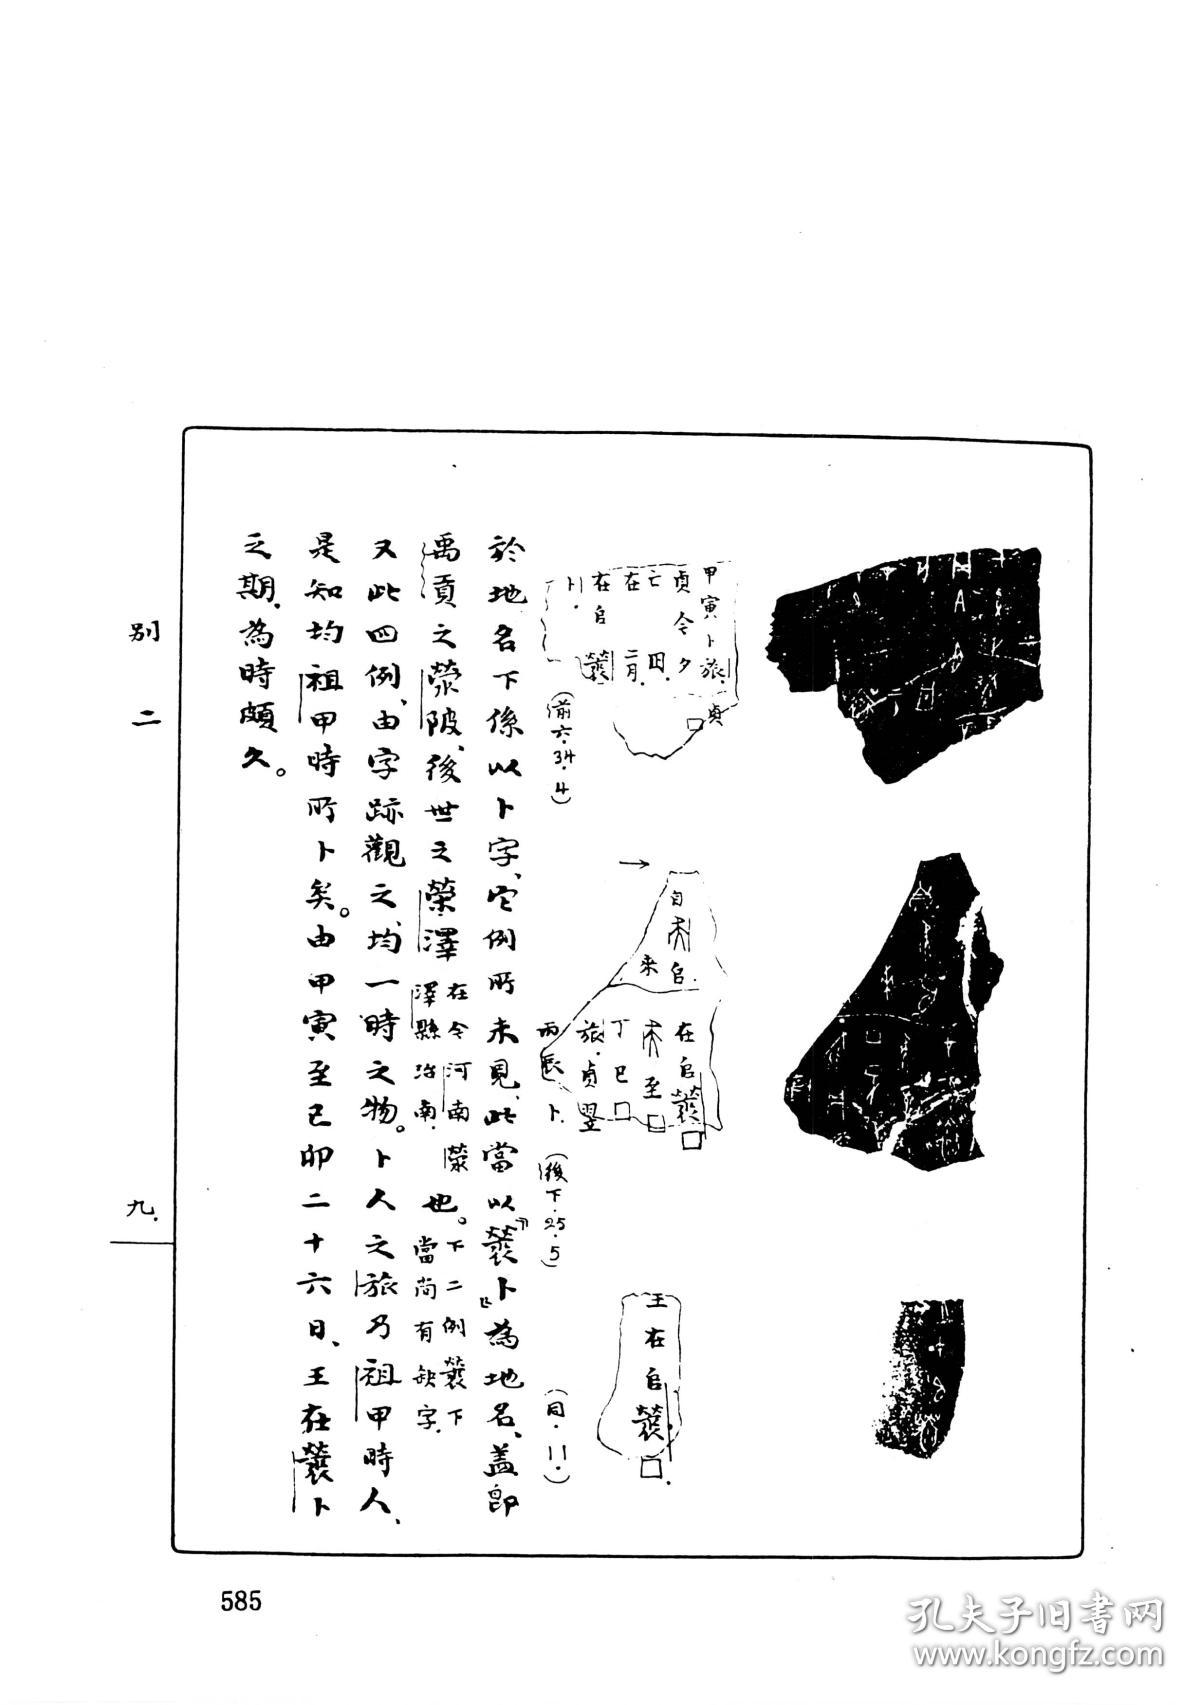 甲寅卜旅
貞
貞今夕
亡𡆥
在二月
在𠂤䙪
卜
(前六·34·4)
𠂤
𠂤
来
在𠂤䙪□
至□
丁巳□
旅貞翌
丙辰卜
(後下·25·5)
王在𠂤䙪□
(同·11·)
於地名下係以卜字、它例所未見、此當以『䙪卜』為地名、蓋即
禹貢之滎陂、後世之榮澤在今河南滎澤縣治南也。下二例䙪下當尚有缺字
又此四例、由字跡觀之、均一時之物。卜人之旅乃祖甲時人、
是知均祖甲時所卜矣。由甲寅至己卯二十六日、王在䙪卜
之期、為時頗久。
别二
九
585
孔夫子旧書网
www.kongfz.com